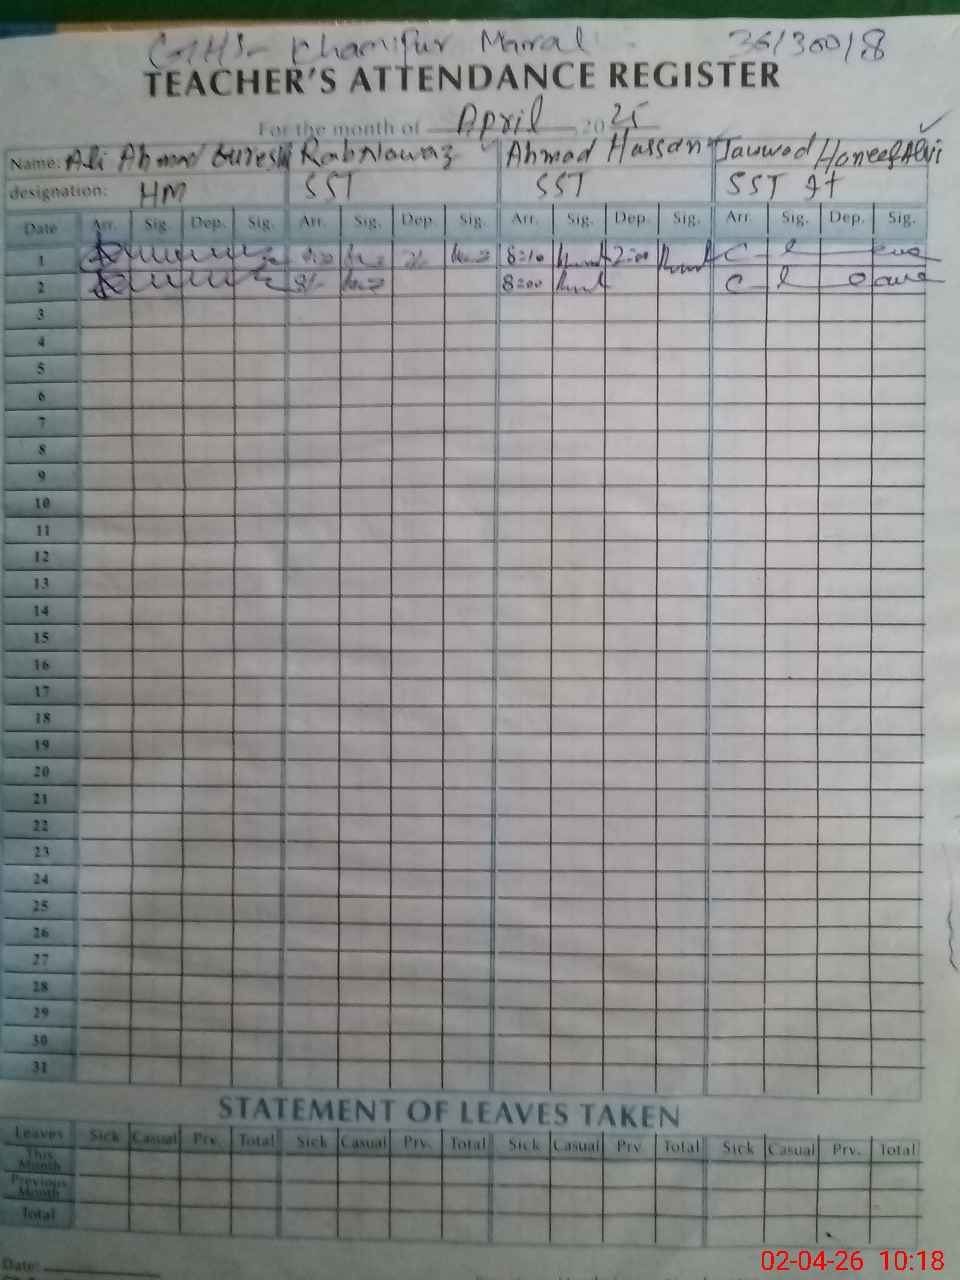 GHS- Khanipur Maral 36130018
TEACHER'S ATTENDANCE REGISTER
For the month of April 2025
Name: Ali Ahmad Qureshi Rab Nawaz Ahmad Hassan Jauwad Haneef Alvi
designation: HM SST SST SST IT
Date Arr. Sig. Dep. Sig. Arr. Sig. Dep. Sig. Arr. Sig. Dep. Sig. Arr. Sig. Dep. Sig.
1 8:10 2:00 C l
2 8/- 8:00 C l
3
4
5
6
7
8
9
10
11
12
13
14
15
16
17
18
19
20
21
22
23
24
25
26
27
28
29
30
31
STATEMENT OF LEAVES TAKEN
Leaves Sick Casual Prv. Total Sick Casual Prv. Total Sick Casual Prv Total Sick Casual Prv. Total
This Month
Previous Month
Total
Date:
02-04-26 10:18